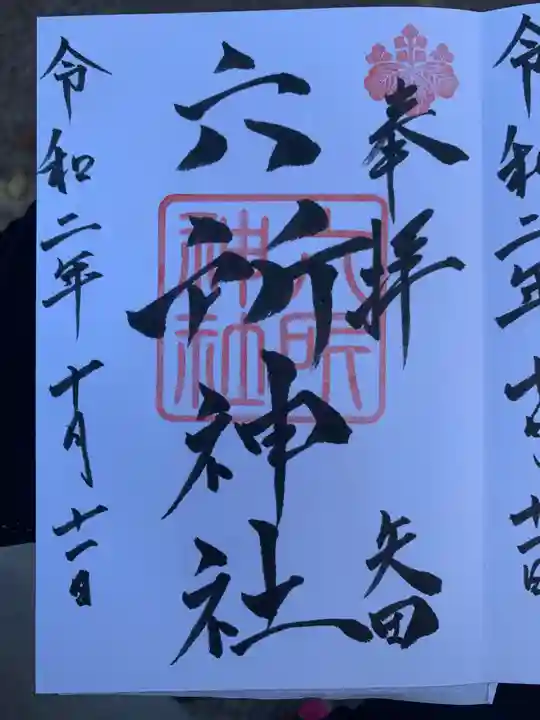 奉拝
矢田
六所神社
六所
神社
令和二年十月十一日
令和二年十月十一日